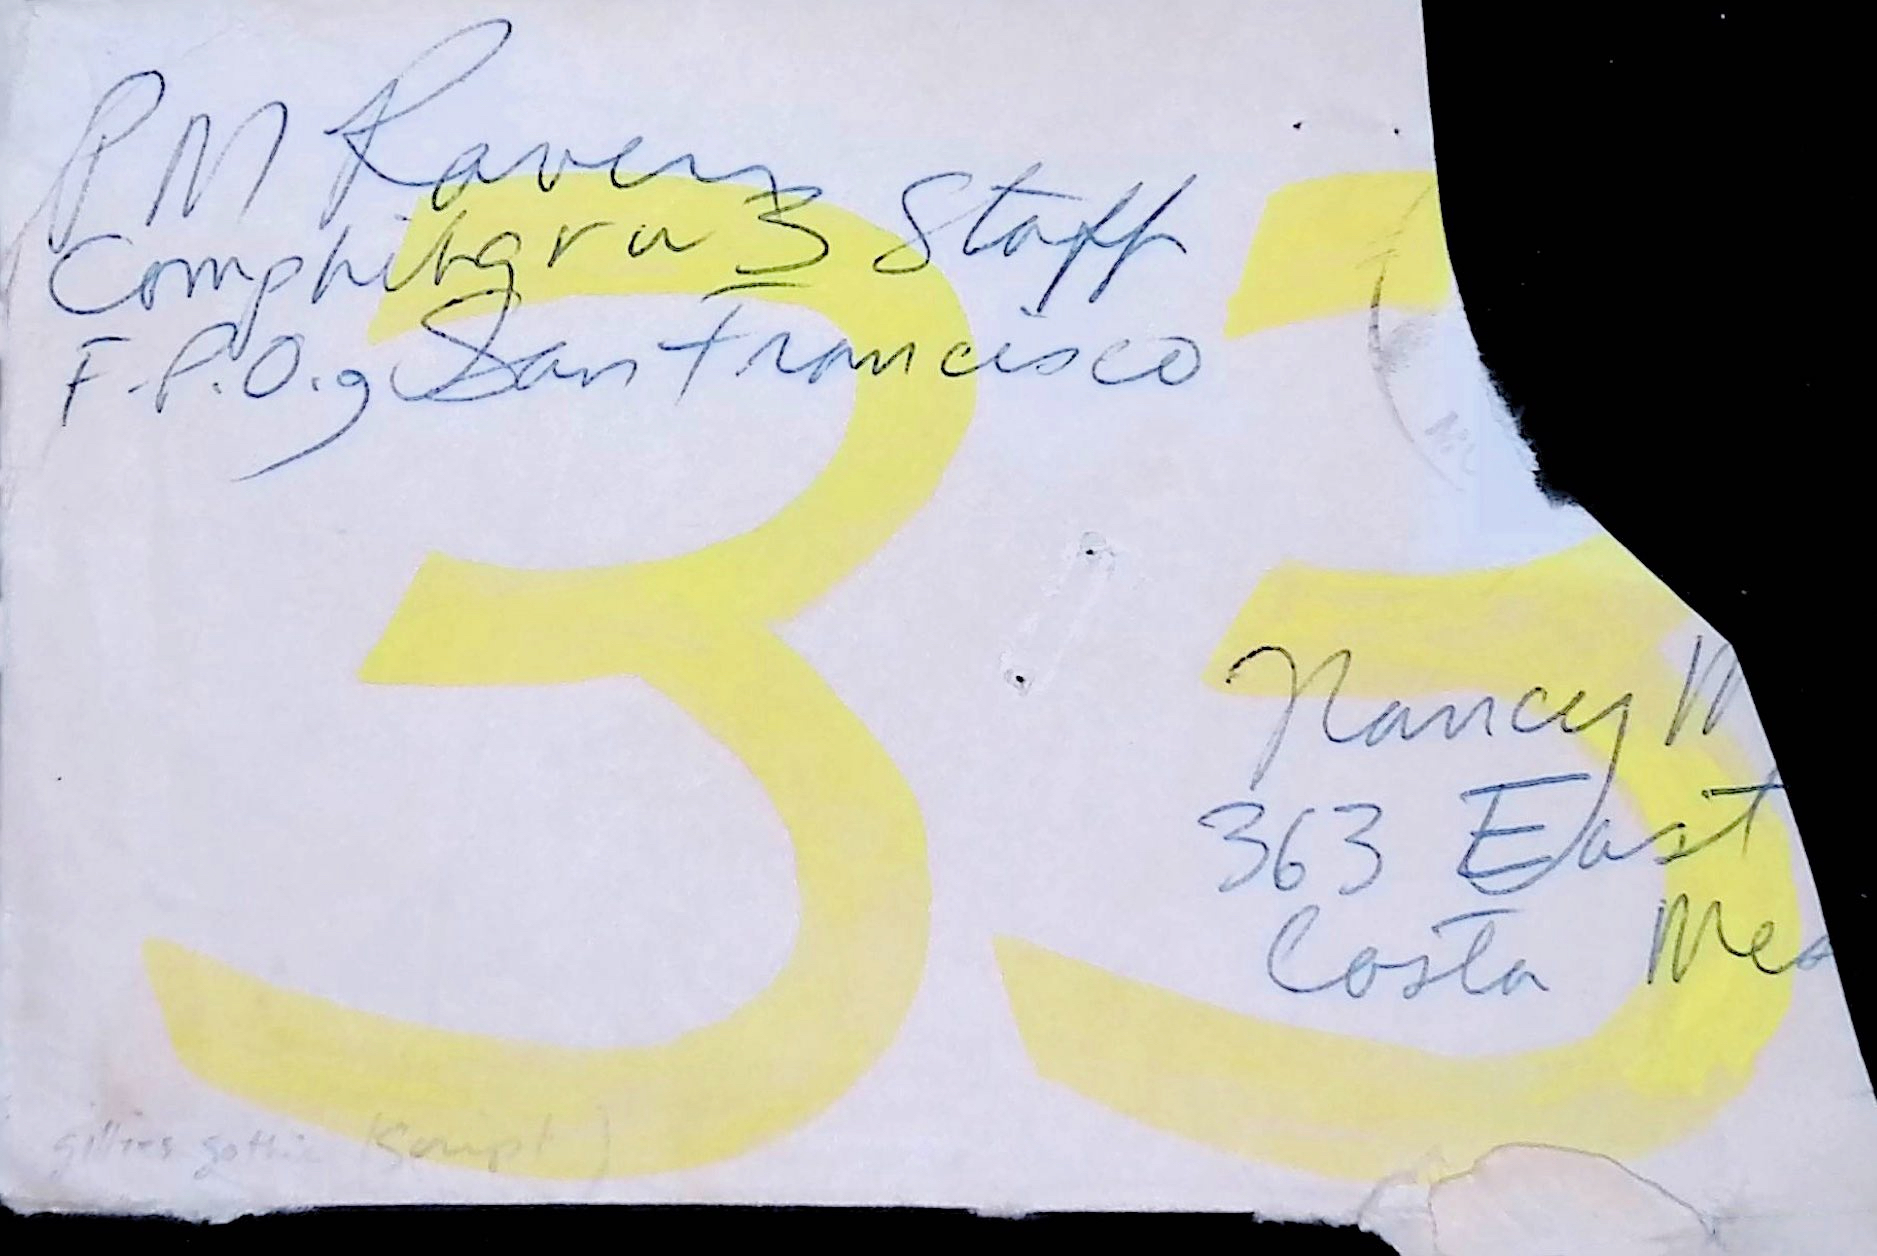 PM Ravery
Comphibgru 3 Staff
F.P.O., San Francisco
33
Nancy M
363 East
Costa Mes
gillies gothic (Script)